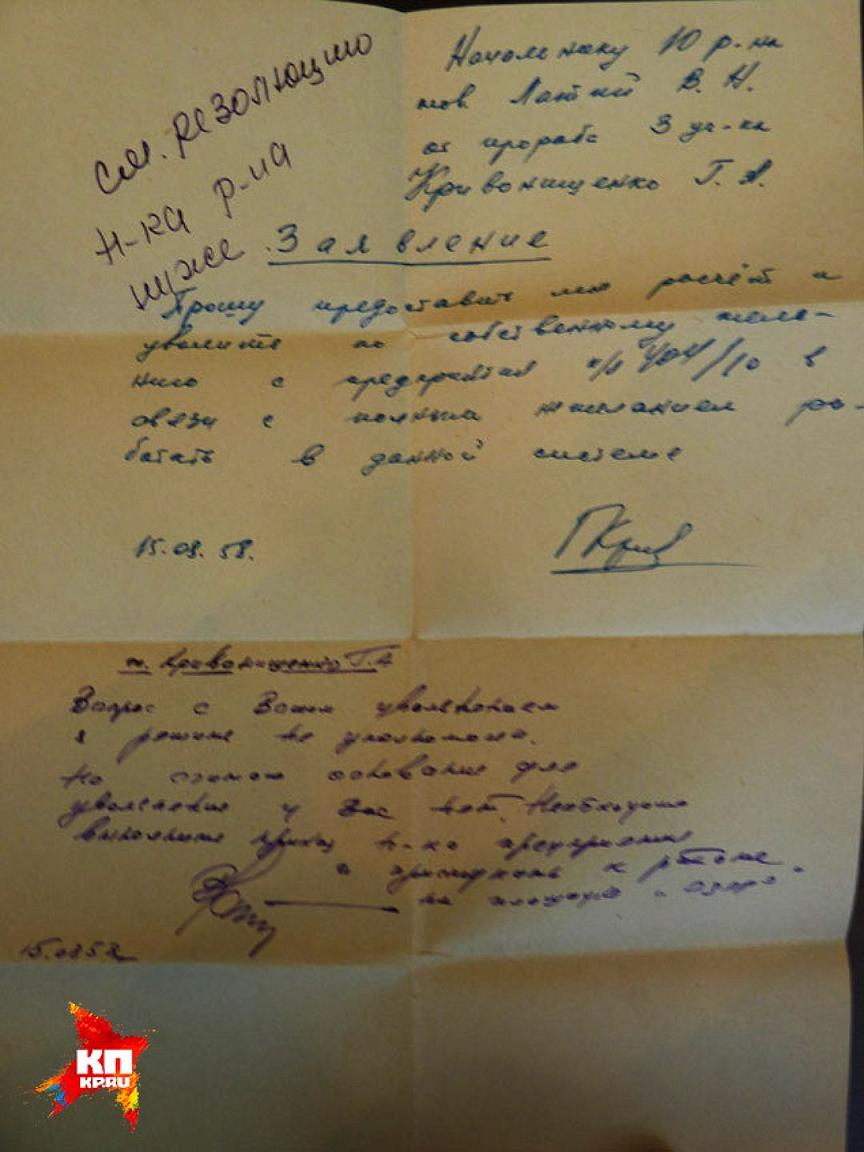 см. резолюцию
н-ка р-на
ниже
Начальнику 10 р-на
тов В. Н.
от прораба 3 уч-ка
Кривонищенко Г. А.
Заявление
Прошу предоставить мне расчёт и
уволить по собственному жела-
нию с предприятия п/я 404/10 в
связи с желанием ра-
ботать в данной системе
15.08.58.
ГКрив
т. Кривонищенко Г.А
Вопрос с Вашим увольнением
я решить не уполномочен.
Но считаю основание для
увольнения у Вас нет. Необходимо
выполнить приказ н-ка предприятия
и приступить к работе
на площадке "озеро".
15.0858
КП
KP.RU